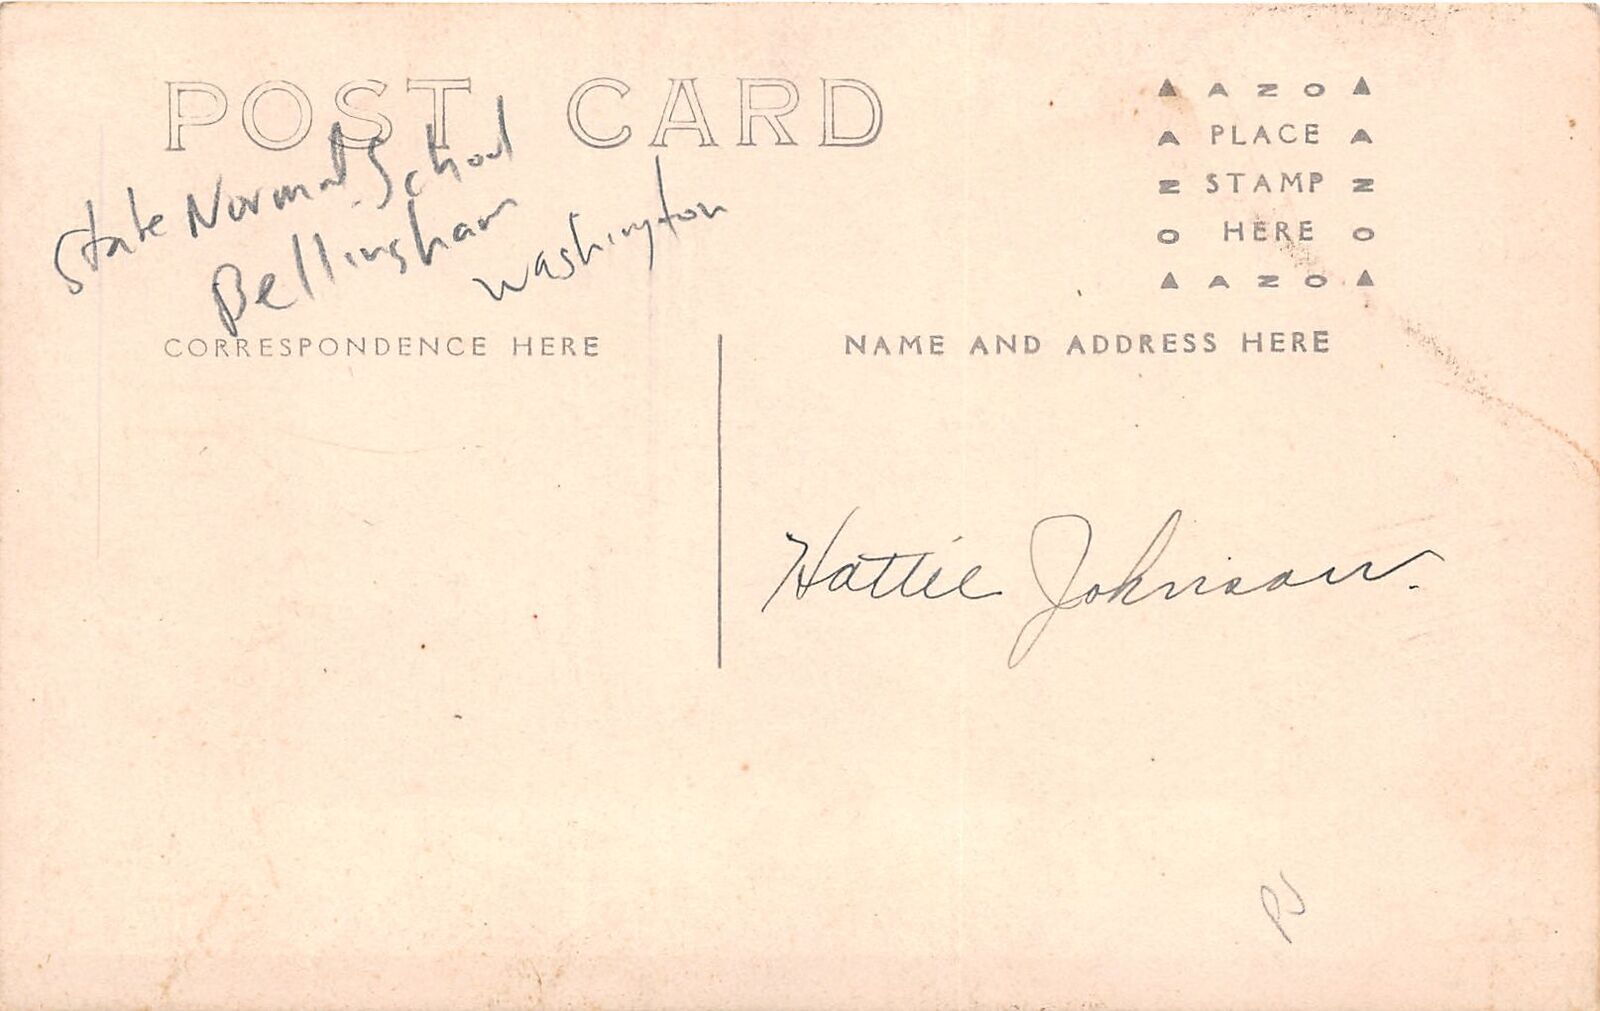 POST CARD
State Normal School
Bellingham
Washington
▲ A Z O ▲
A PLACE A
Z STAMP Z
O HERE O
▲ A Z O ▲
CORRESPONDENCE HERE
NAME AND ADDRESS HERE
Hattie Johnson.